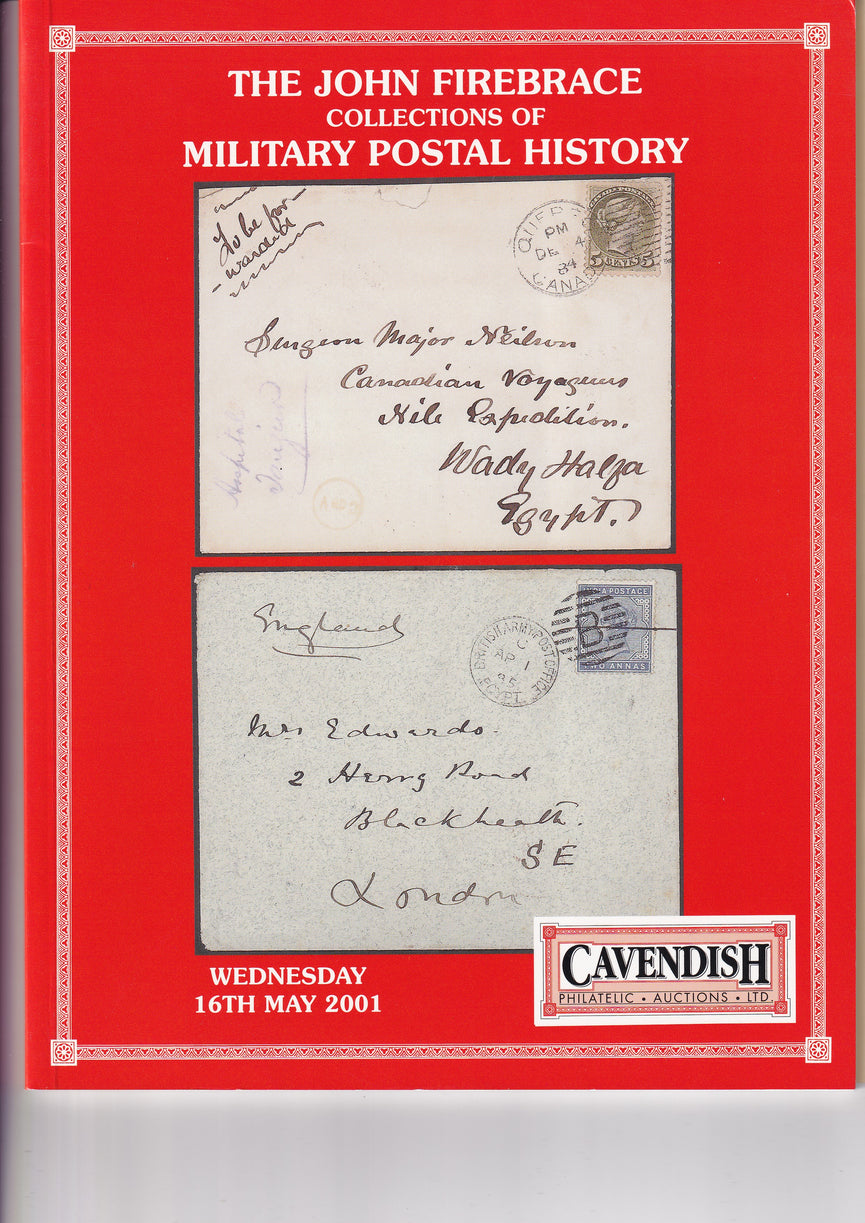 THE JOHN FIREBRACE
COLLECTIONS OF
MILITARY POSTAL HISTORY
To be for-
-warded
PM
DE 4
84
CANADA
CANADA POSTAGE
5 CENTS 5
Surgeon Major Neilson
Canadian Voyageurs
Nile Expedition.
Wady Halfa
Egypt.
England
BRITISH ARMY POST OFFICE
C
AP 1
85
EGYPT
INDIA POSTAGE
B
TWO ANNAS
Mrs Edwards.
2 Road
Blackheath.
SE
London
WEDNESDAY
16TH MAY 2001
CAVENDISH
PHILATELIC • AUCTIONS • LTD.